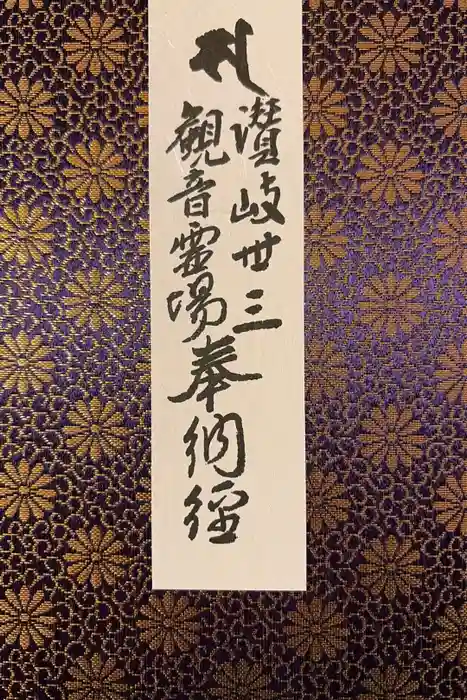 讃岐丗三
観音霊場
奉納経